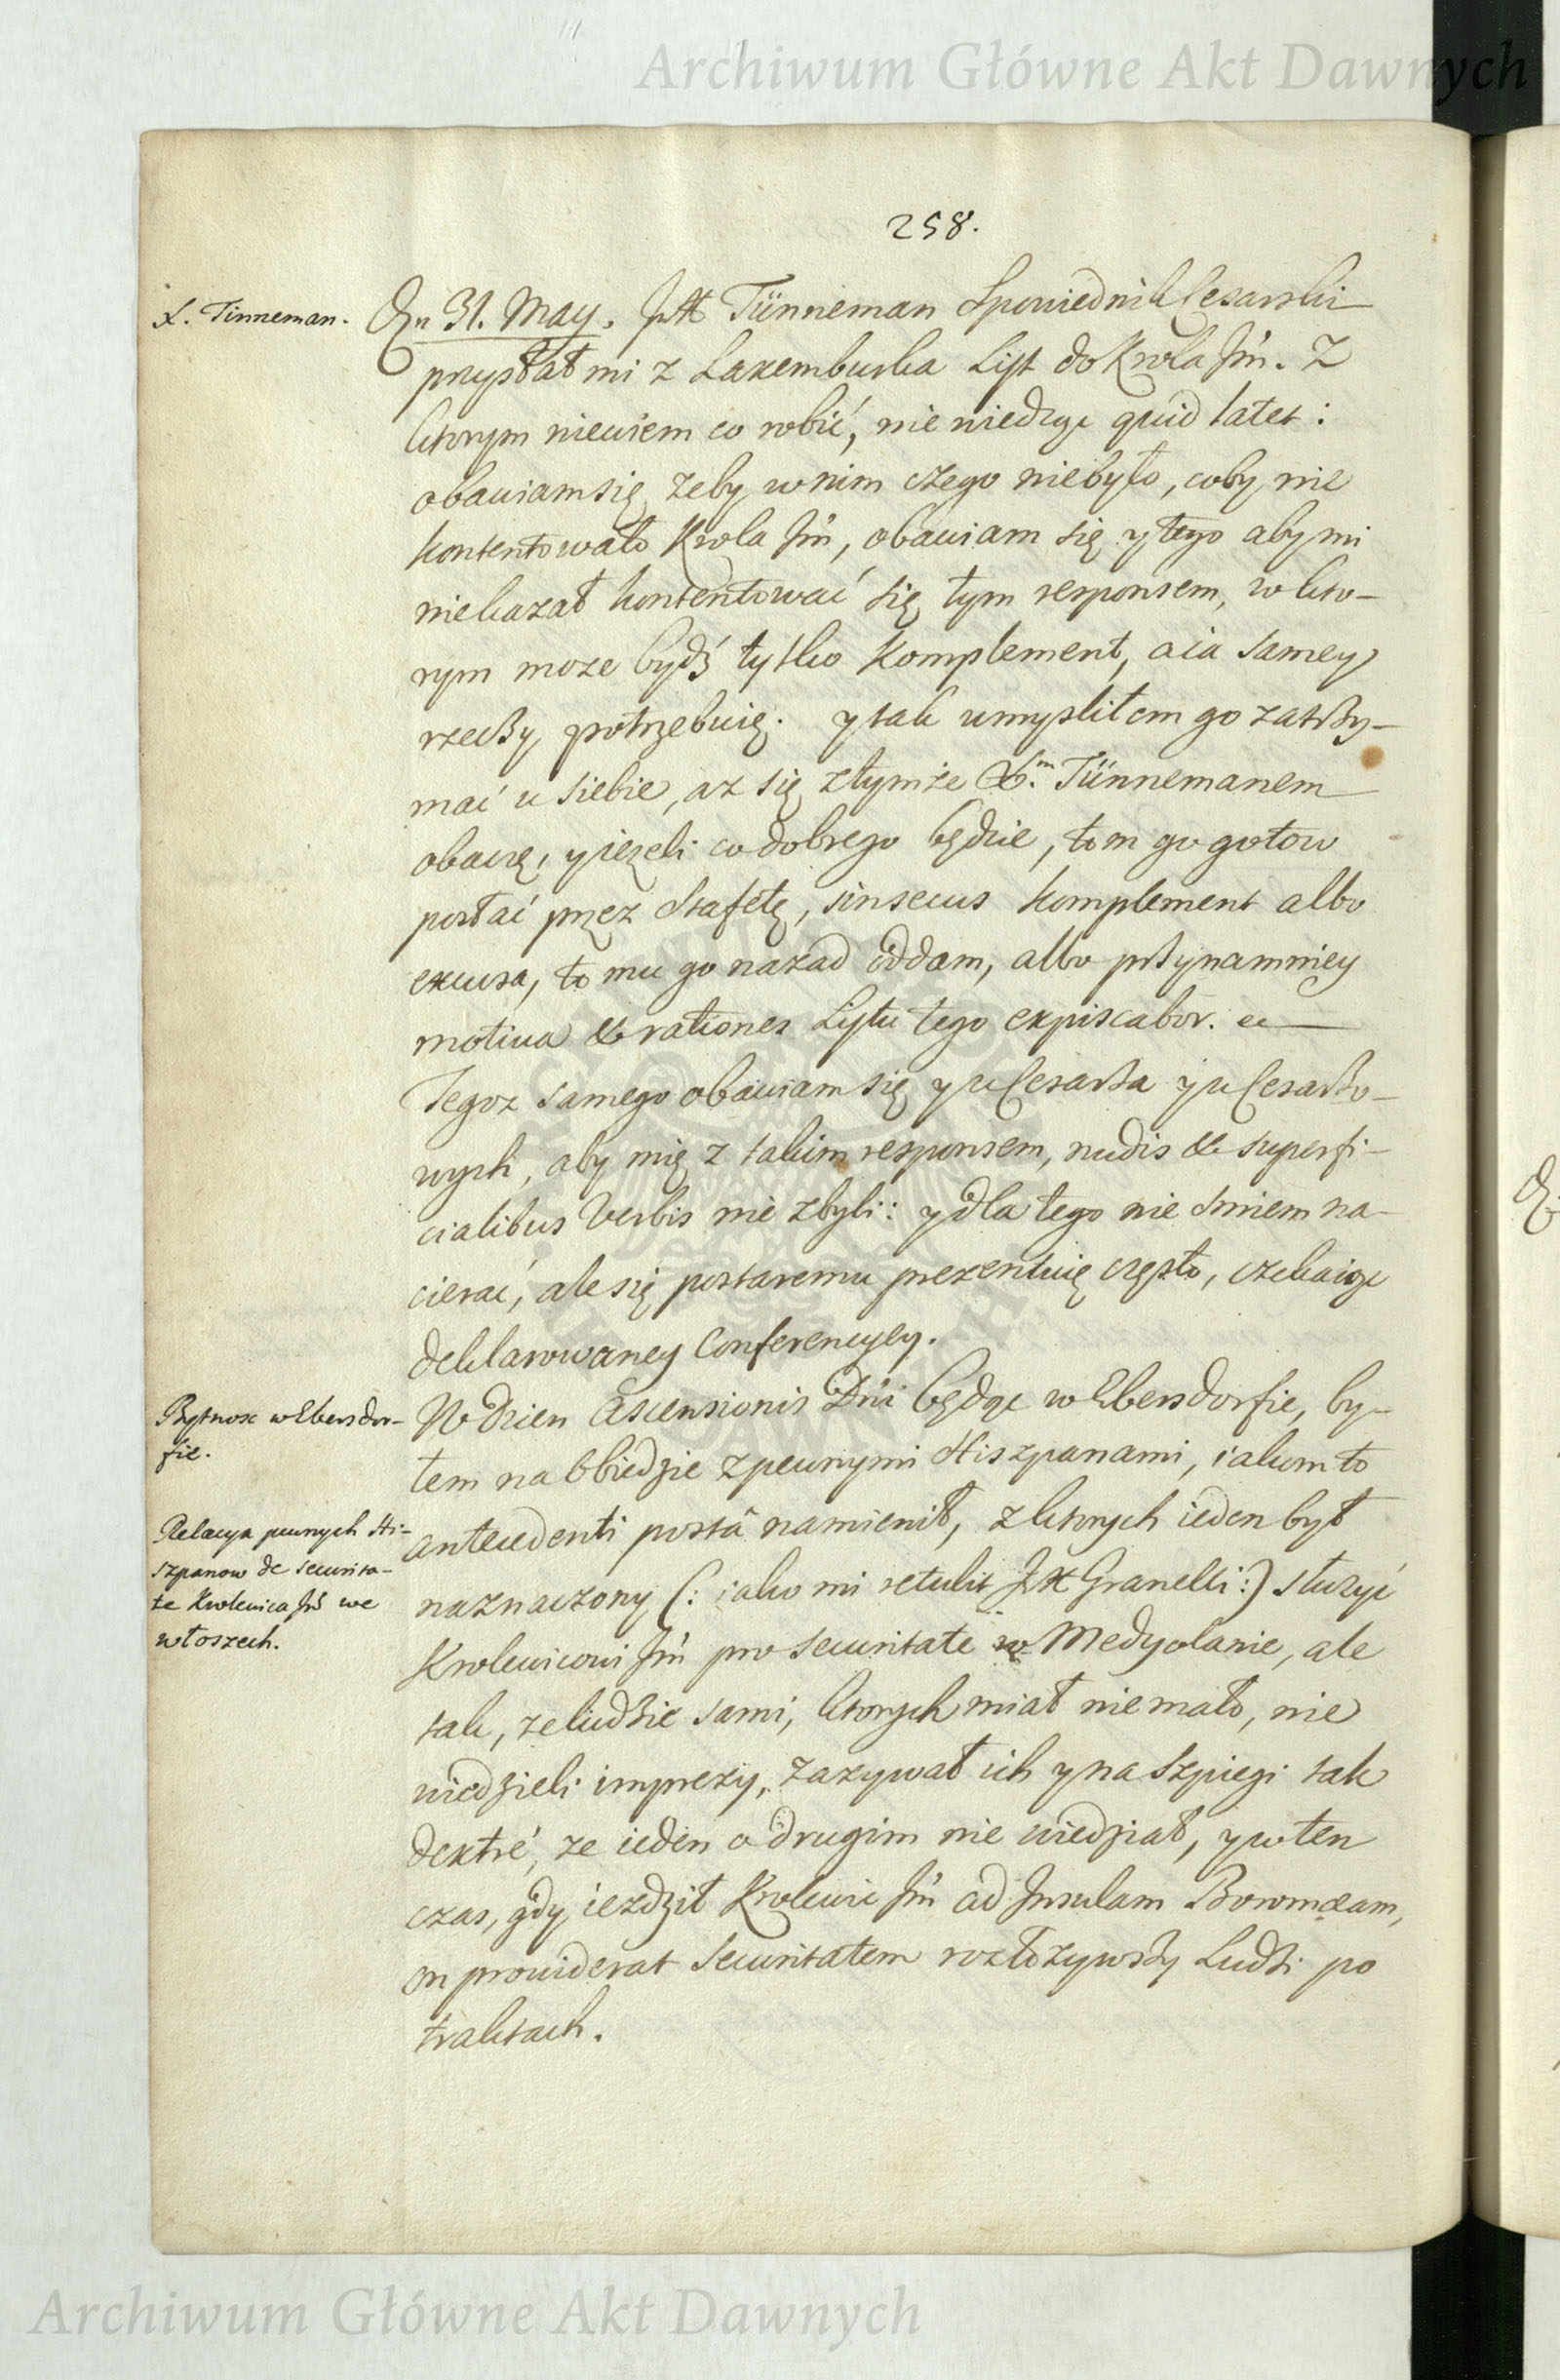 Archiwum Główne Akt Dawnych
258.
X. Tinneman.
Dn 31. May. JX Tünneman Spowiednik Cesarski
przysłał mi z Laxemburka List do Krola Jm̃. Z
ktorym niewiem co robić, nie wiedząc quid latet:
obawiam się zeby w nim czego niebyło, coby nie
kontentowało Krola Jm̃, obawiam się y tego aby mi
niekazał kontentować się tym responsem, w kto-
rym moze bydź tylko Komplement, a ia samey
rzeczy potrzebuię. y tak umysliłem go zatrzy-
mać u siebie, az się z tymże X.m Tünnemanem
obaczę, y ieżeli co dobrego będzie, tom go gotow
posłać przez Stafetę, sinsecus komplement albo
excusa, to mu go nazad oddam, albo przynamniey
motiva & rationes Listu tego expiscabor. ec
Tegoz samego obawiam się y u Cesarza y u Cesarzo-
wych, aby mię z takim responsem, nudis & superfi-
cialibus Verbis nie zbyli: y dla tego nie smiem na-
cierać, ale się postaremu prezentuię często, czekaiąc
deklarowaney Conferencyey.
Bytnosc w Ebersdor-
fie.
W dzien Ascensionis Dñi będąc w Ebersdorfie, by-
łem na Obiedzie z pewnymi Hiszpanami, iakom to
Relacya pewnych Hi-
szpanow de securita-
te Krolewica Jm̃ we
włoszech.
antecedenti postâ namienił, z ktorych ieden był
naznaczony (: iako mi retulit JX Granelli :) służyć
Krolewicowi Jm̃ pro securitate w Medyolanie, ale
tak, ze ludzie sami, ktorych miał niemało, nie
wiedzieli imprezy, zazywał ich y na Szpiegi tak
dextrè, ze ieden o drugim nie wiedział, y w ten
czas, gdy iezdził Krolewic Jm̃ ad Insulam Boromæam,
on providerat Securitatem rozłożywszy Ludzi po
traktach.
Archiwum Główne Akt Dawnych